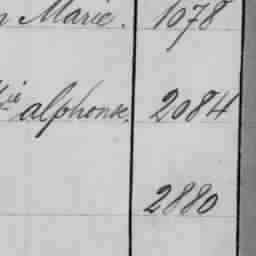 Marie. 1078
alphonse. 2084
2880